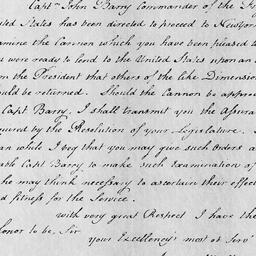 Capt John Barry Commander of the Fr
ited States has been directed to proceed to NewYork
amine the Cannon which you have been pleased to
u were ready to lend to the United States upon an a
om the President that others of the like Dimension
ould be returned. Should the Cannon be approv
Capt Barry, I shall transmit you the Assura
quired by the Resolution of your Legislature. I
an while I beg that you may give such Orders a
able Capt Barry to make such Examination of
he may think necessary to ascertain their effect
d fitness for the Service.
With very great Respect I have the
onor to be, Sir
your Excellency's most ob Serv